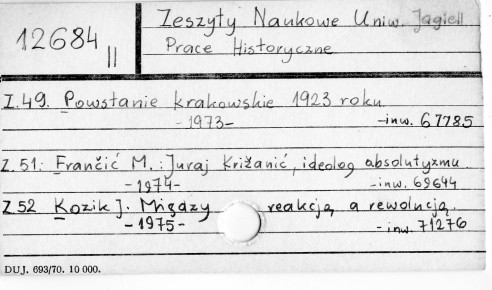 12684 II
Zeszyty Naukowe Uniw. Jagiell.
Prace Historyczne
Z.49. Powstanie krakowskie 1923 roku.
-1973- -inw. 67785
Z.51. Frančić M.: Juraj Križanić, ideolog absolutyzmu
-1974- -inw. 69644
Z 52 Kozik J. Między reakcją a rewolucją.
-1975- -inw. 71276
DUJ. 693/70. 10 000.